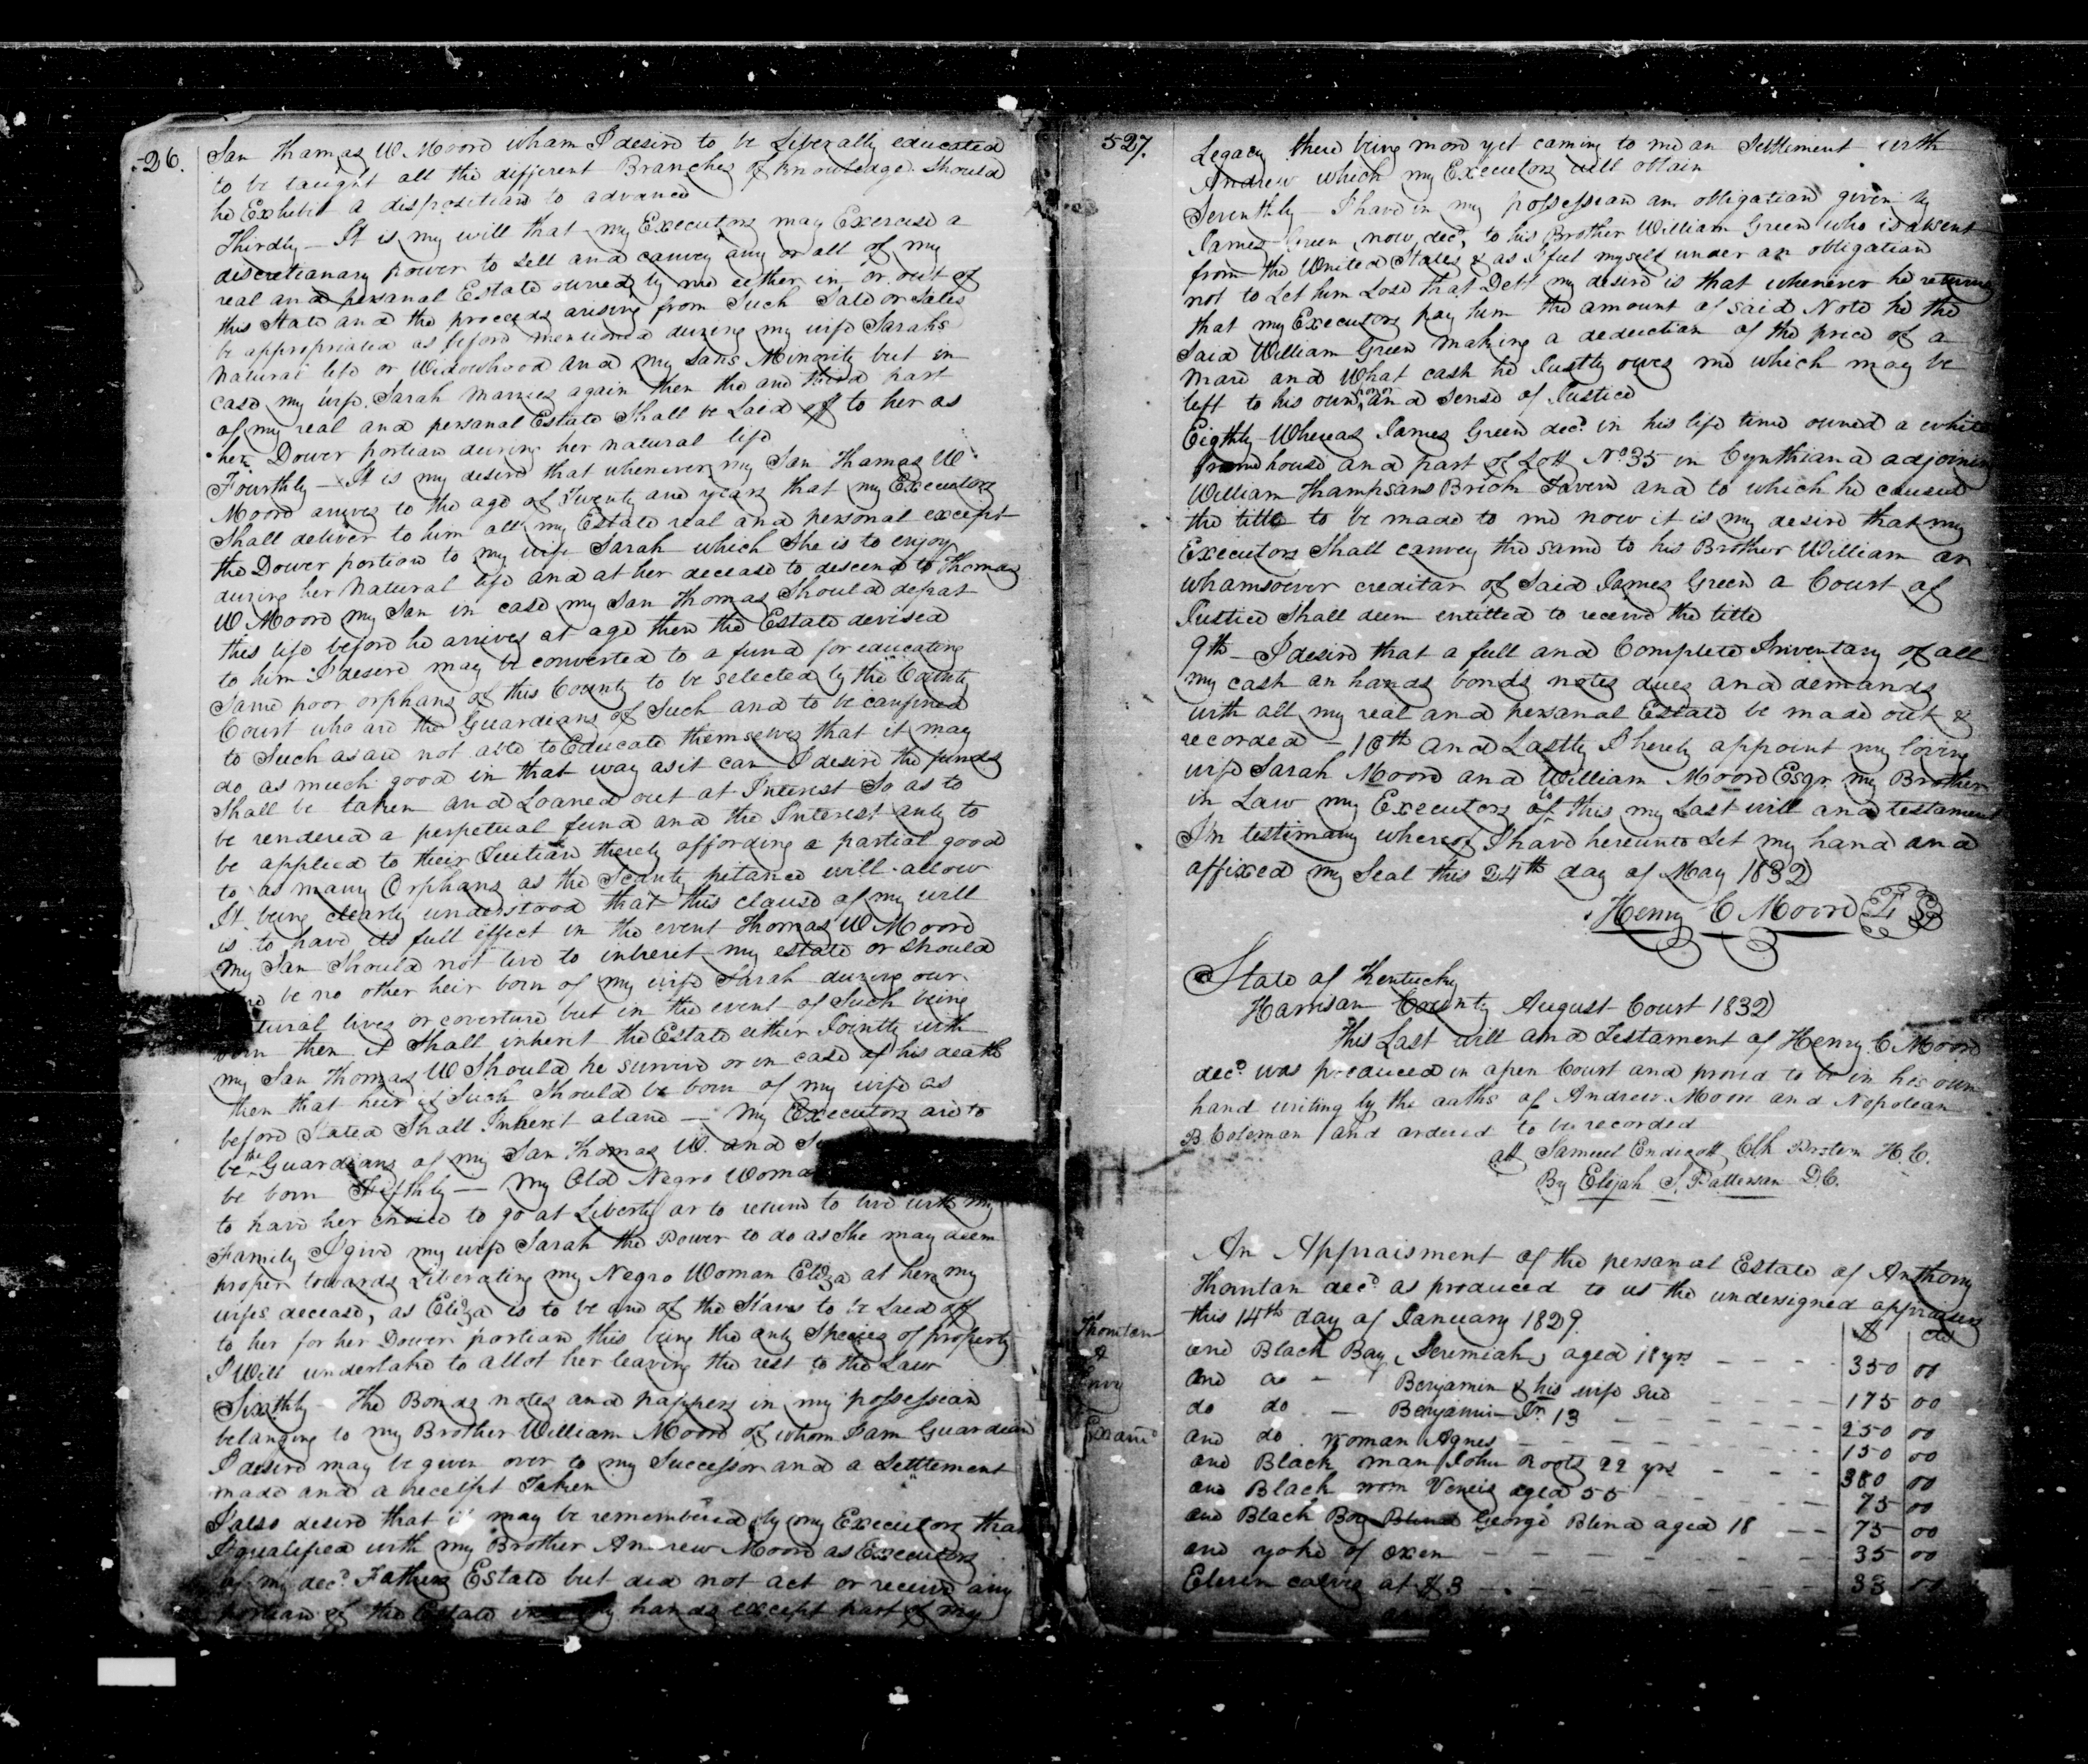 526.
San Thomas W. Moore wham I desire to be Liberally educated
to be taught all the different Branches of Knowledge Should
he Exhibit a disposition to advance
Thirdly — It is my will that my Executors may Exercise a
discretianary power to sell and canvey any or all of my
real and persanal Estate owned by me either in or out of
this State and the proceeds arising from Such Sale or Sales
be appropriated as before mentioned during my wife Sarahs
Natural life or Widowhood and my Sans Minority but in
case my wife Sarah Marries again then the one third part
of my real and personal Estate Shall be Laid off to her as
her Dower portian during her natural life
Fourthly — It is my desire that whenever my San Thamas W
Moore arives to the age of Twenty one years that my Executors
Shall deliver to him all my Estate real and personal except
the Dower portion to my wife Sarah which She is to enjoy
during her Natural life and at her decease to descend to Thomas
W Moore my San in case my San Thomas Should depart
this life before he arrives at age then the Estate devised
to him I desire may be converted to a fund for educating
Same poor orphans of this County to be selected by the County
Court who are the Guardians of Such and to be confined
to Such as are not able to Educate themselves that it may
do as much good in that way as it can I desire the funds
Shall be taken and Loaned out at Interest So as to
be rendered a perpetual fund and the Interest anly to
be applied to their Tuitian thereby affording a partial good
to as many Orphans as the Scanty pitance will allow
It being clearly understood that this clause of my will
is to have its full effect in the event Thomas W Moore
my San Should not live to inherit my estate or should
be no other heir born of my wife Sarah during our
natural lives or coverture but in the event of Such being
born then it Shall inherit the Estate either Jointly with
my San Thomas W Should he survive or in case of his death
then that heir if Such Should be born of my wife as
before Stated Shall Inherit alane — My Executors are to
be the Guardians of my San Thomas W. and
be born Fifthly — My Old Negro Woman
to have her choice to go at Liberty or to return to live with my
Family I give my wife Sarah the Power to do as She may deem
proper towards Liberating my Negro Woman Eliza at her my
wifes decease, as Eliza is to be one of the Slaves to be Laid off
to her for her Dower portian this being the anly Species of property
I Will undertake to allot her leaving the rest to the Law
Sixthly — The Bonds notes and pappers in my possession
belanging to my Brother William Moore of whom I am Guardian
I desire may be given over to my Successor and a Settlement
made and a receipt Taken
I also desire that it may be remembered by my Executors that
I qualified with my Brother Andrew Moore as Executors
of my decd Fathers Estate but did not act or receive any
portian of the Estate in my hands except part of my
527.
Legacy there being more yet caming to me an Settlement with
Andrew which my Executors will obtain
Seventhly — I have in my possessian an obligation given by
James Green now decd to his Brother William Green who is absent
from the United States & as I feel myself under an obligatian
not to Let him Lose that Debt my desire is that whenever he returns
that my Executors pay him the amount of said Note he the
Said William Green making a deduction of the price of a
Mare and What cash he Justly owes me which may be
left to his own honor and Sense of Justice
Eigthly — Whereas James Green decd in his life time owned a white
frame house and part of Lott No 35 in Cynthiana adjoining
William Thampsans Brick Tavern and to which he caused
the title to be made to me now it is my desire that my
Executors Shall canvey the same to his Brother William or
whamsoever creditar of Said James Green a Court of
Justice Shall deem entitled to receive the title
9th — I desire that a full and Complete Inventary of all
my cash an hands bonds notes dues and demands
with all my real and persanal Estate be made out &
recorded — 10th and Lastly I hereby appoint my loving
wife Sarah Moore and William Moore Esqr. my Brother
in Law my Executors to of this my Last will and testament
In testimany whereof I have hereunto Set my hand and
affixed my Seal this 24th day of May 1832
Henry C Moore L S
State of Kentucky
Harrisan County August Court 1832
This Last will and Testament of Henry C Moore
decd was produced in apen Court and proved to be in his own
hand writing by the oaths of Andrew Moore and Nopolean
B Coleman and ordered to be recorded
att Samuel Endicott Clk Protem H. C.
By Elijah S. Patterson D.C.
An Appraisment of the persanal Estate of Anthony
Thorntan decd as produced to us the undersigned appraisers
this 14th day of January 1829.
$ cts
Thornton
A
Invy
Exam
one Black Boy, Jeremiah, aged 18 yrs — 350 00
one do — Benjamin & his wife Sue — 175 00
do do — Benjamin Jr. 13 — 250 00
one do. woman Agnes — 150 00
one Black man John Roots 22 yrs — 380 00
one Black wom Veneis aged 55 — 75 00
one Black Boy Blind George Blind aged 18 — 75 00
one yoke of oxen — 35 00
Eleven calves at $3 — 33 00